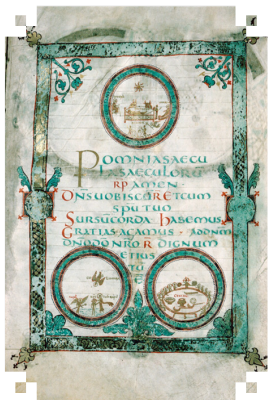 POMNIASAECU
LASAECULORŪ
RP AMEN·
DNSUOBISCŪRETCUM
SPUTUO
SURSUCORDA· HABEMUS
GRATIAS AGAMUS·
DNODONRO R DIGNUM
ETIUS